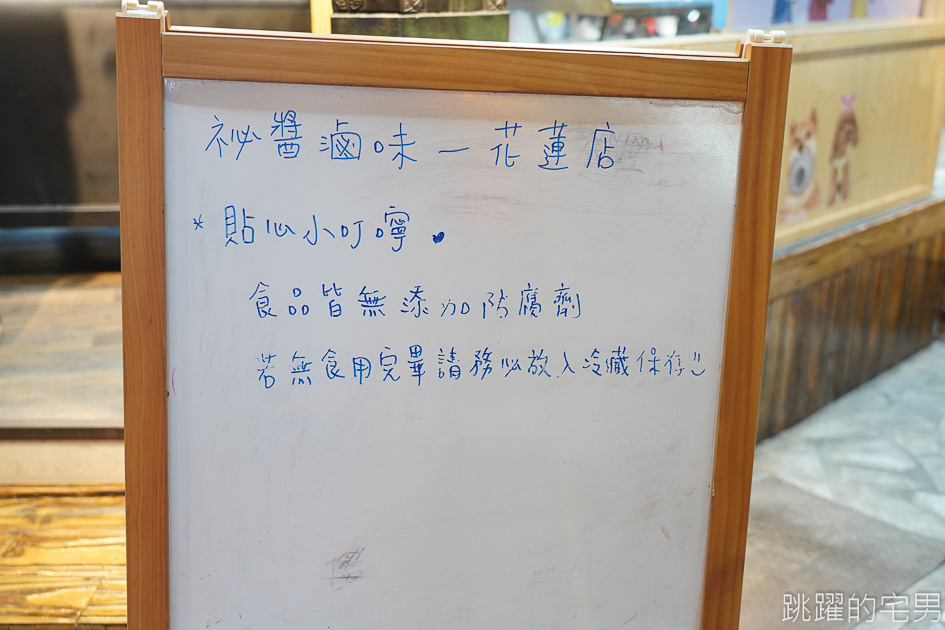 祕醬滷味－花蓮店
*貼心小叮嚀.
食品皆無添加防腐劑
若無食用完畢請務必放入冷藏保存!!
跳躍的宅男